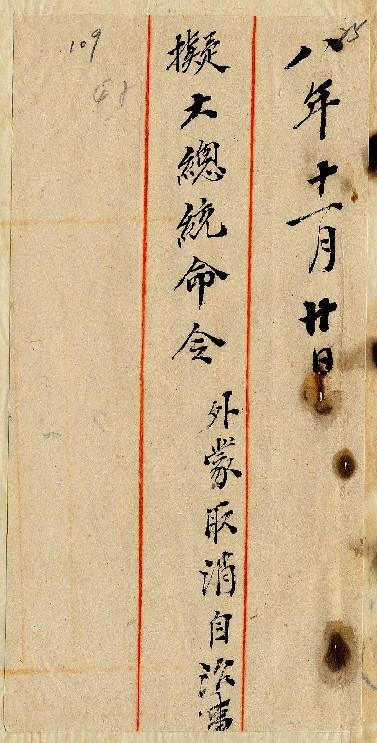 八年十一月廿日
擬大總統命令
外蒙取消自治事
109